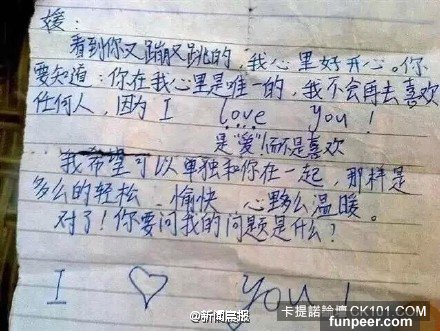 媛：
看到你又蹦又跳的，我心里好开心。你
要知道：你在我心里是唯一的，我不会再去喜欢
任何人，因为 I love you！
是“爱”而不是喜欢
我希望可以单独和你在一起，那样是
多么的轻松、愉快 心多么温暖。
对了！你要问我的问题是什么？
I ♡ you！
@新闻晨报
卡提諾論壇 CK101.COM
funpeer.com